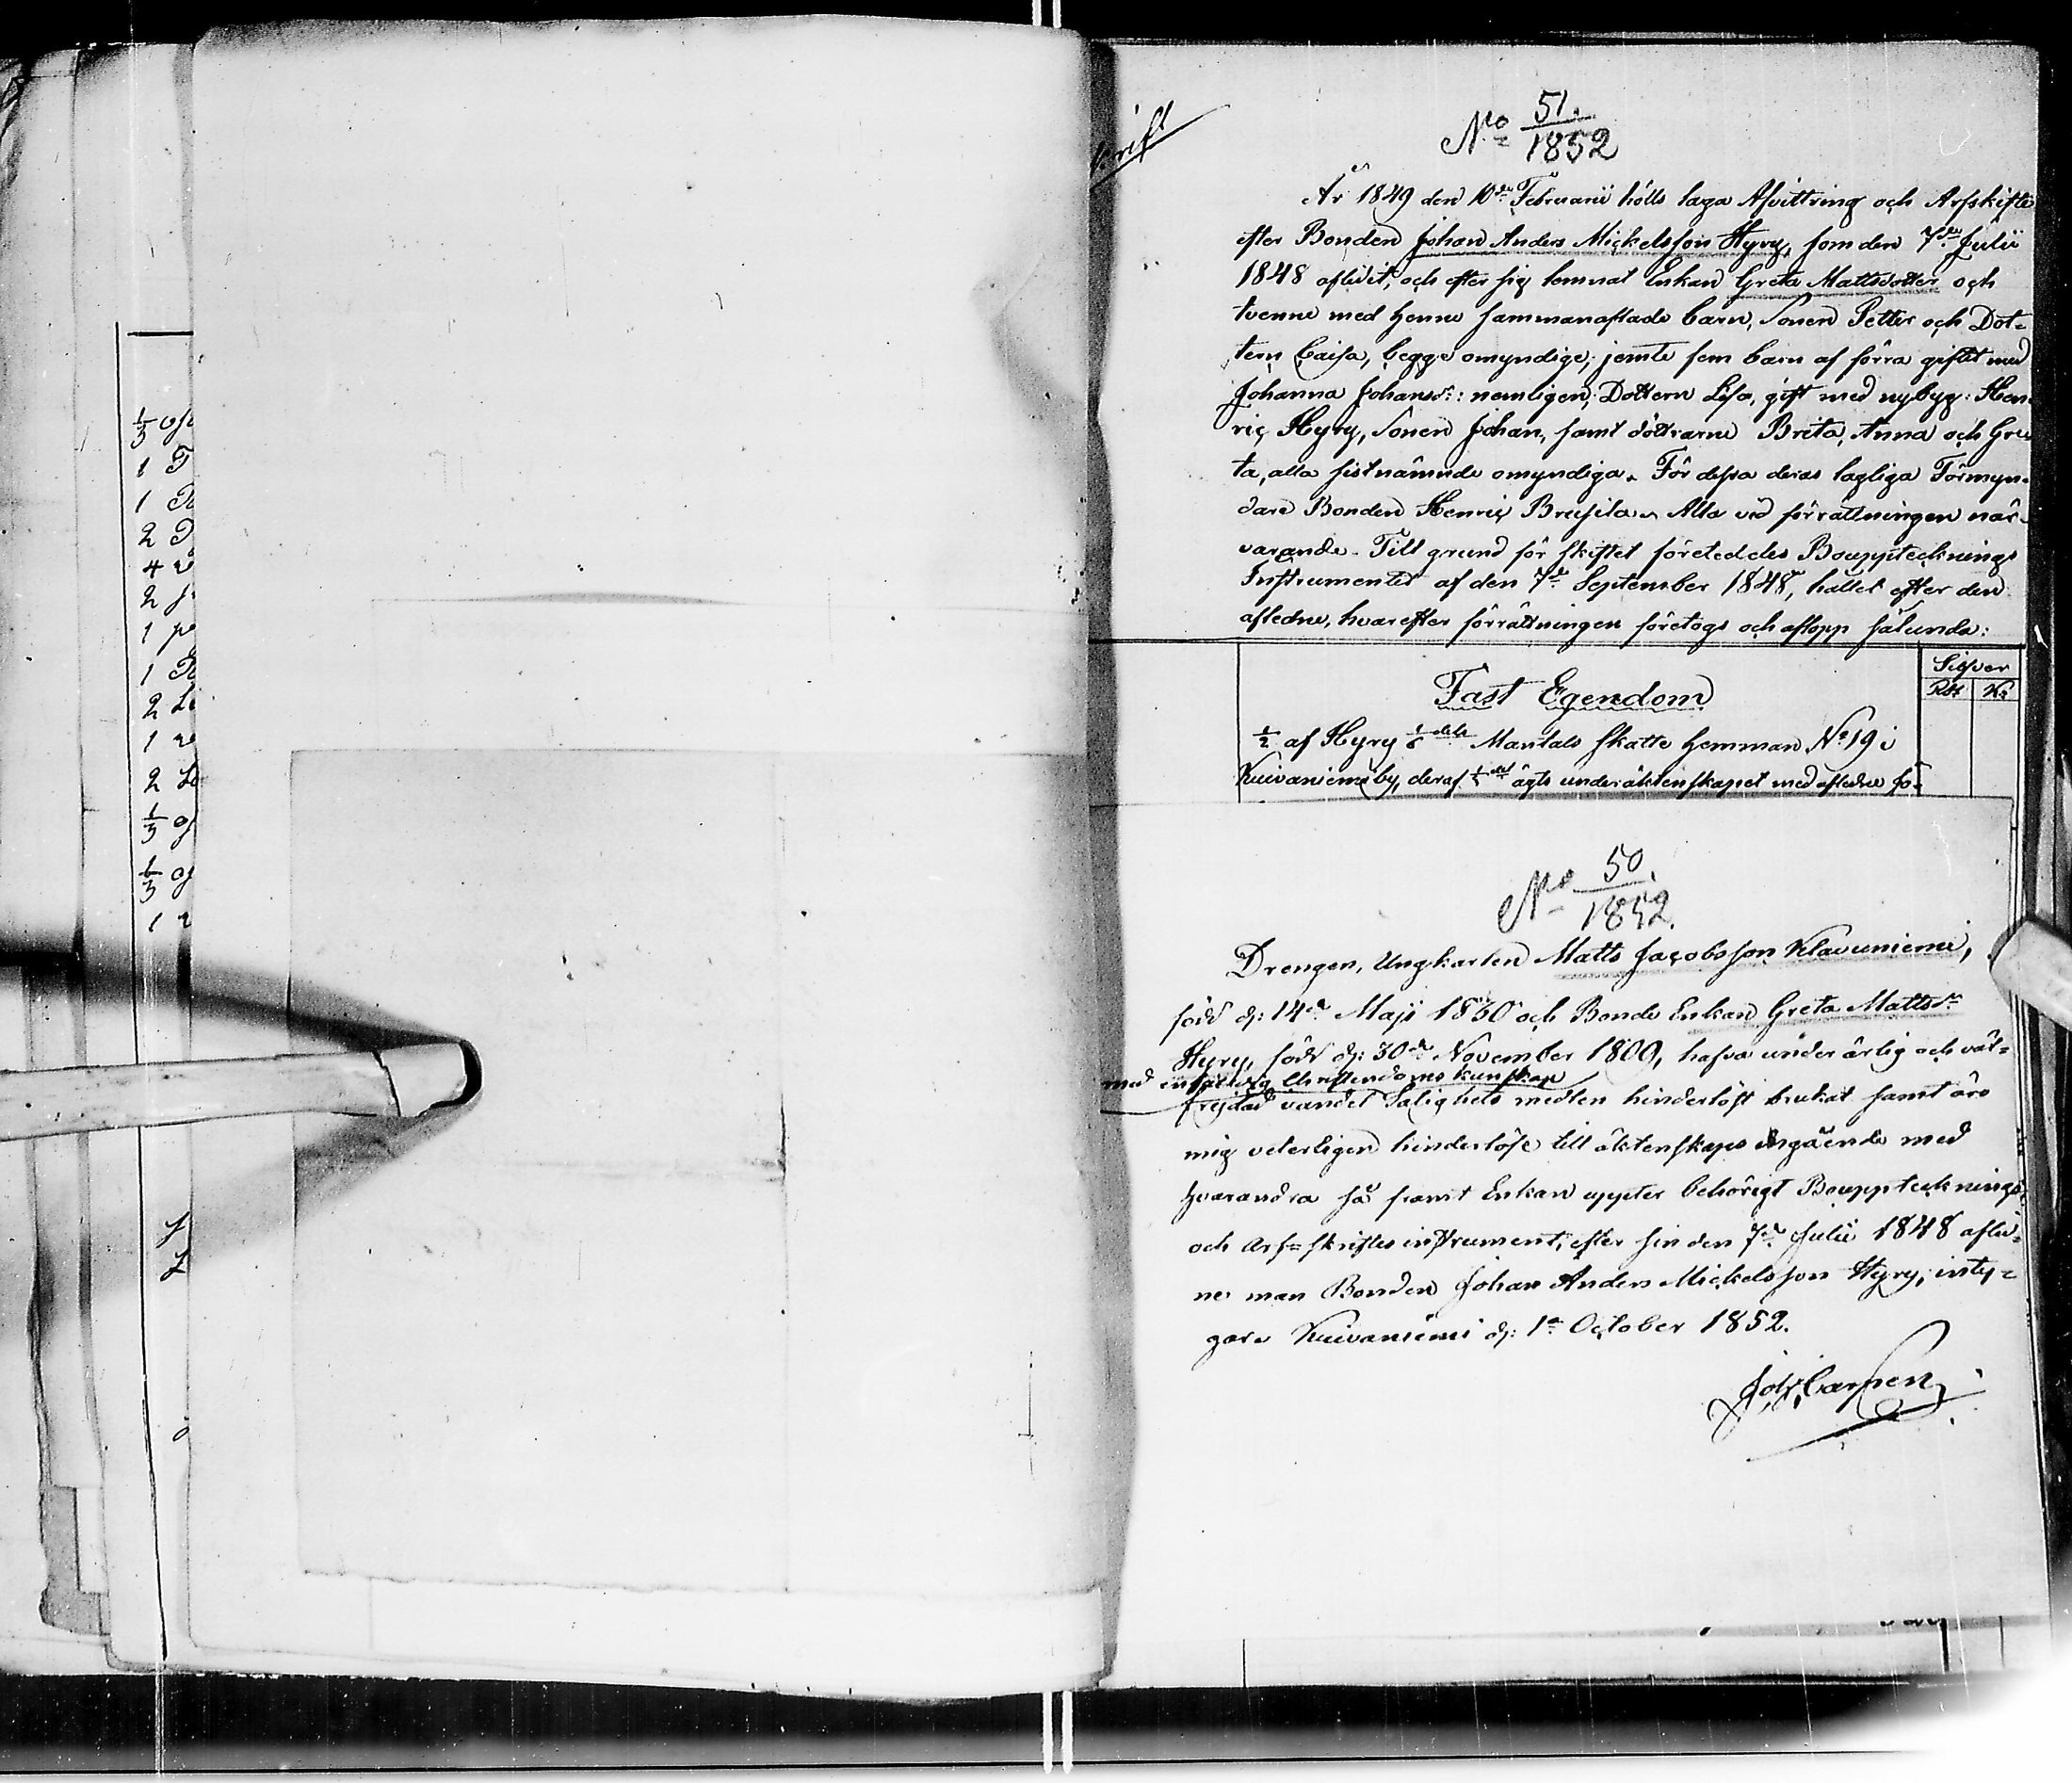 1/3
1 T
1
2
4
2
1
1
2
1
2
1/3
1/3
1
rift
No 51.
1852
År 1849 den 10de Februarii hölls laga Afvittring och Arfskifte
efter Bonden Johan Anders Mickelsson Hyry, som den 7de Julii
1848 aflidit, och efter sig lemnat Enkan Greta Mattsdotter och
tvenne med henne sammanaflade barn, Sonen Petter och Dot-
tern Caisa, begge omyndige, jemte fem barn af förra giftet med
Johanna Johansdr: nemligen, Dottern Lisa, gift med nybyg: Hen-
ric Hyry, Sonen Johan, samt döttrarne Brita, Anna och Gre-
ta, alla sistnämnde omyndiga. För dessa deras lagliga Förmyn-
dare Bonden Henric. Alla vid förrättningen när-
varande. Till grund för skiftet företeddes Bouppteknings
Instrumentet af den 7de September 1848, hållet efter den
aflidne, hvarefter förrättningen företogs och aflopp sålunda:
Silfver
Fast Egendom
Rbl Kp
1/2 af Hyry 1/6 dels Mantals skatte hemman No 19 i
Kuivaniemi by, deraf ägts under äktenskapet med aflidne Jo-
No 50.
1852.
Drengen, Ungkarlen Matts Jacobsson Klavuniemi,
född d: 14de Maji 1830 och Bonde Enkan Greta Mattsdr
Hyry, född d: 30de November 1809, hafva under ärlig och väl-
med enfaldig Christendoms kunskap
frejdad vandel Salighets medlen hinderlöst brukat samt äro
mig veterligen hinderlöse till äktenskaps ingående med
hvarandra så framt Enkan uppter behörigt Bouppteknings
och Arf-skiftes instrument, efter sin den 7de Julii 1848 aflid-
ne man Bonden Johan Anders Mickelsson Hyry; inty-
gar. Kuivaniemi d: 1a October 1852.
Joh. Carlsen